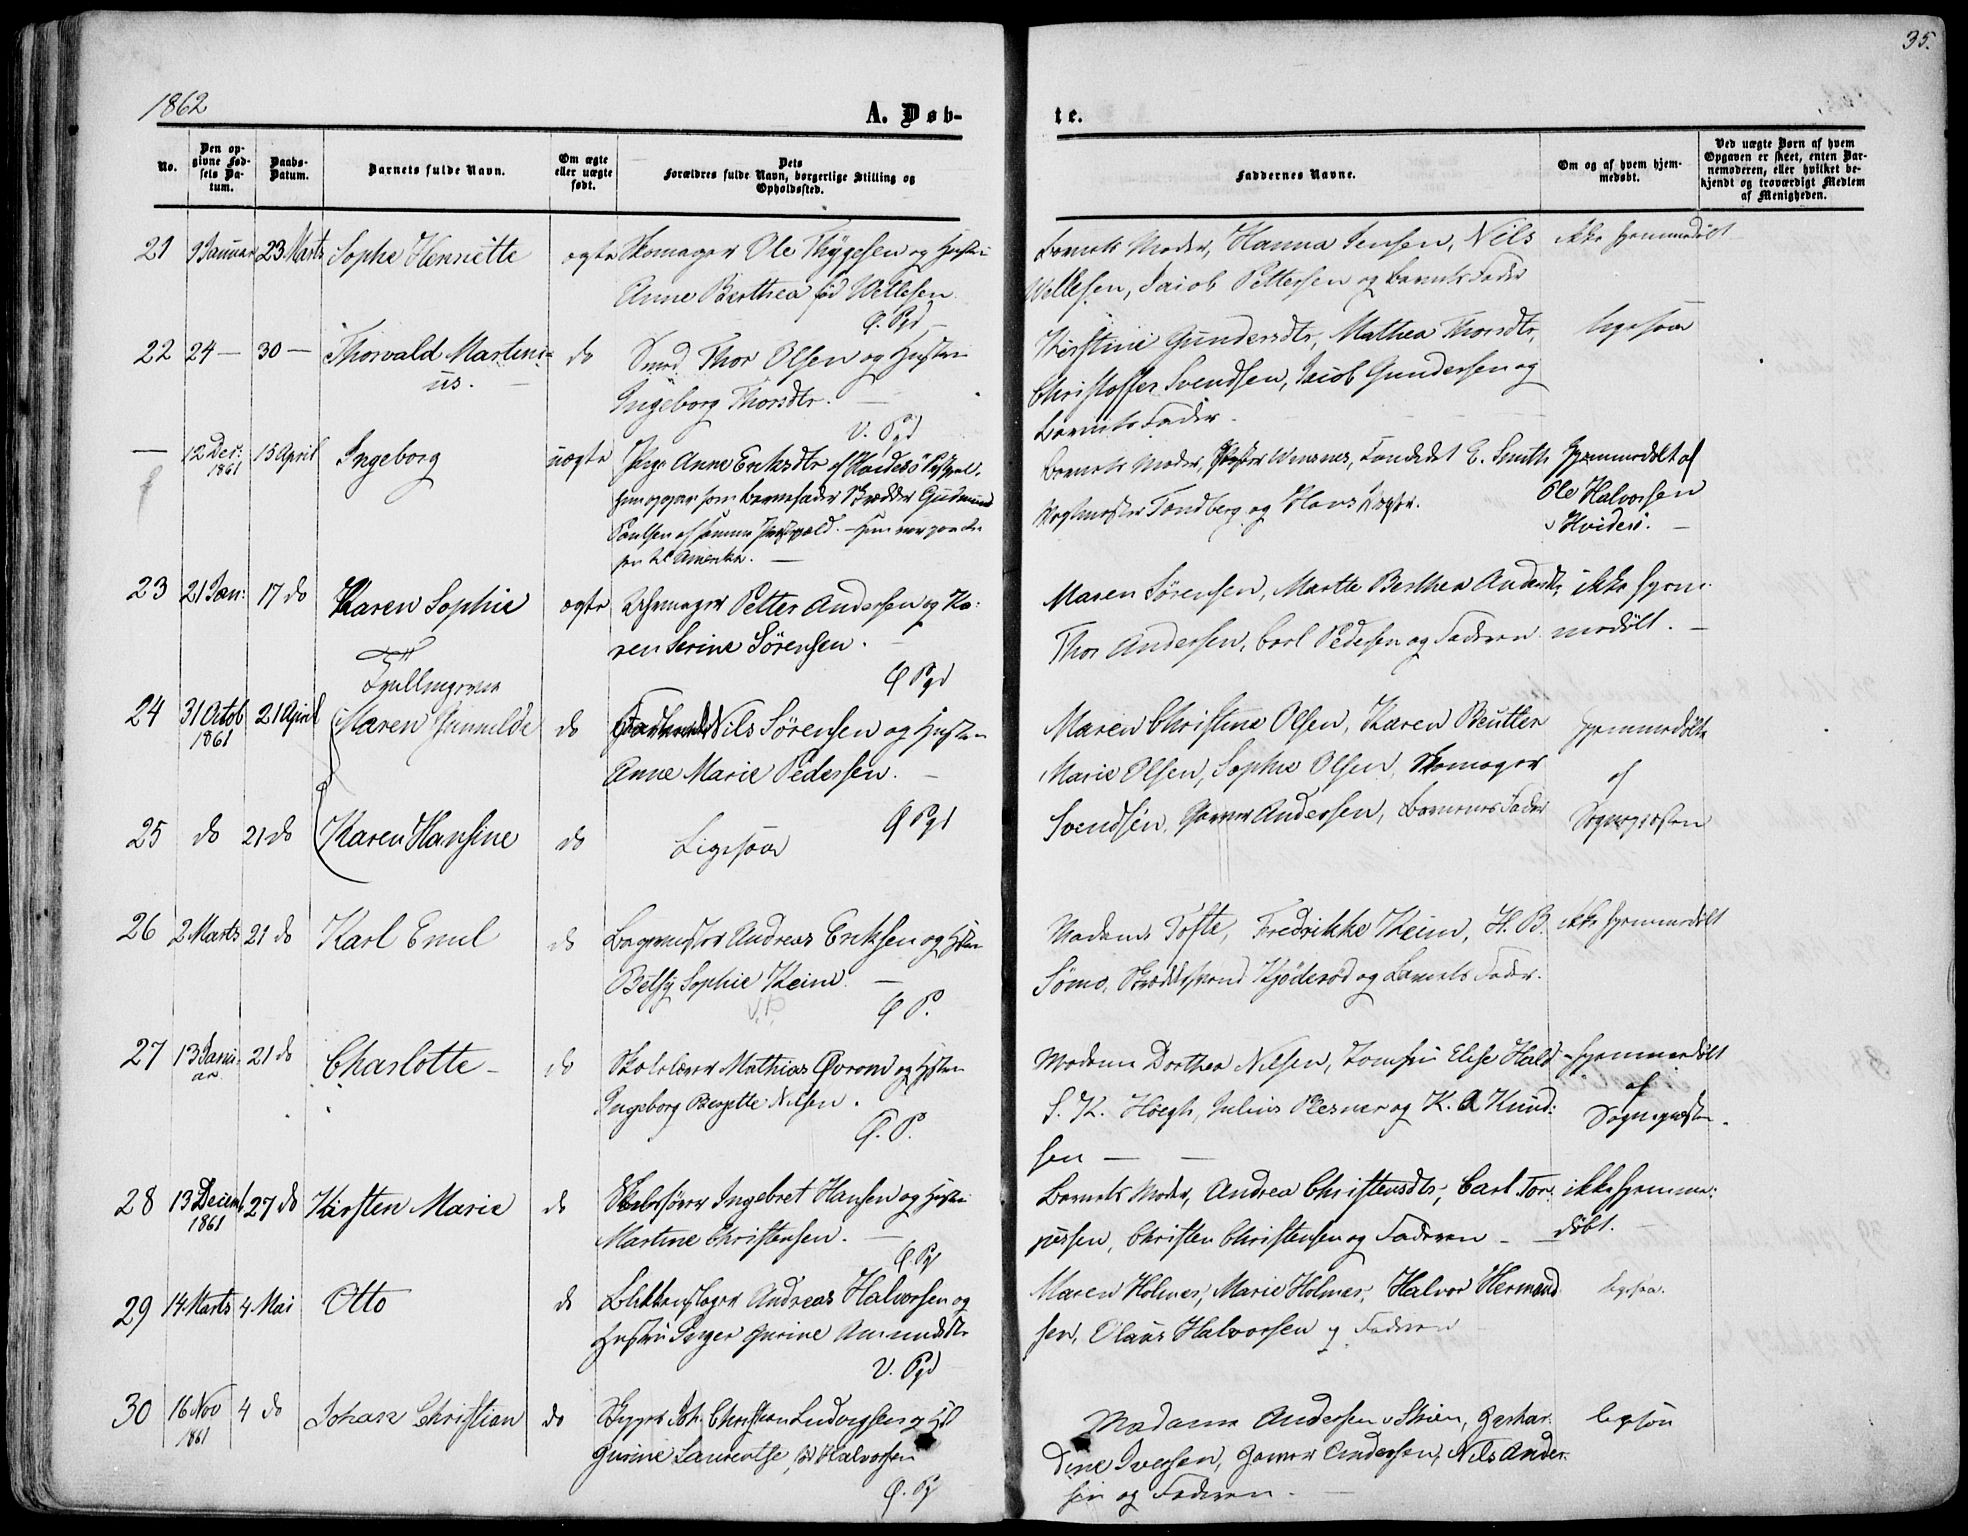 35.
1862
A. Døb-
te.
No.
Den op-
givne Fød-
sels Da-
tum.
Daabs-
Datum.
Barnets fulde Navn.
Om ægte
eller uægte
født.
Dets
Forældres fulde Navn, borgerlige Stilling og
Opholdssted.
Faddernes Navne.
Om og af hvem hjem-
medøbt.
Ved uægte Børn af hvem
Opgaven er skeet, enten Bar-
nemoderen, eller hvilket be-
kjendt og troværdigt Medlem
af Menigheden.
21 9 Januar 23 Marts Sophe Henriette ægte Skomager Ole Thygesen og Hustru
Anne Berthea fød Wellesen
Ø. Pgd
Barnets Moder, Hanna Jensen, Nils
Wellesen, Jacob Pettersen og Barnets Fader
ikke hjemmedöbt
22 24 — 30 — Thorvald Martini-
us. —
do Smed Thor Olsen og Hustru
Ingeborg Thorsdtr. —
V. Pgd
Kirstine Gundersdtr, Mathea Thorsdtr,
Christoffer Svendsen, Jacob Gundersen og
Barnets Fader.
ligesaa
— 12 Dec: 1861 15 April Ingeborg uægte Pige Anne Eriksdtr af Hvidesö
hun opgav som Barnefader Skrædder Gudmund
Paulsen af samme Præstegjeld. — Hun
til Amerika. —
Barnets Moder, Wensnes, E. Smith
Tandberg og Hans
Hjemmedöbt af
Ole Halvorsen
Hvidesö. —
23 21 Jan: 17 do Karen Sophie ægte Petter Andersen og Ka-
ren Serine Sörensen. —
Ø Pgd
Maren Sörensen, Marthe Berthea Andersdtr,
Thor Andersen, Carl Pedersen og Faderen
ikke hjem-
medöbt. —
Tvillingerne
24 31 Octob 1861 21 April Maren Gunnilde do Nils Sörensen og Hustru
Anne Marie Pedersen. —
Ø Pgd
Maren Christine Olsen, Karen Beutler
Marie Olsen, Sophie Olsen, Skomager
Svendsen, Garver Andersen, Börnenes Fader
hjemmedöbte
af
Sognepresten
25 do 21 do Karen Hansine do Ligesaa
26 2 Marts 21 do Karl Emil do Bagermester Andreas Eriksen og Hstru
Betsy Sophie Keim. —
V.P.
Ø P.
Madame Tofte, Fredrikke Keim, H. B.
Sömo, Kjöderöd og Barnets Fader.
ikke hjemmedöbt
27 13 Janu-
ar
21 do Charlotte — do Skolelærer Mathias Øvrom og Hstru
Ingeborg Bergette Nilsen.
Ø. P.
Madame Dorthea Nilsen, Jomfru Elise Hald
S. K. Höegh, Julius Plesner og K. A Knud-
sen —
hjemmedöbt
af
Sognepresten.
28 13 Decemb 1861 27 do Kirsten Marie do Ingebret Hansen og Hustru
Martine Christensen. —
Ø. Pgd
Barnets Moder, Andrea Christensdtr, Carl Tor-
jussen, Christen Christensen og Faderen —
ikke hjemme-
döbt.
29 14 Marts 4 Mai Otto do Blikkenslager Andreas Halvorsen og
Hustru Inger Gurine Amundsdtr
V. Pgd
Maren Holmer, Marie Holmer, Halvor Hermand
sen, Olaus Halvorsen og Faderen
ligesaa.
30 16 Nov 1861 4 do Johan Christian do Skipper Joh. Christian Ludvigsen og H
Gurine Laurentse, Halvorsen
Ø. Pgd
Madame Andersen i Skien, Gerhar-
dine Iversen, Garver Andersen, Nils Ander-
sen og Faderen. —
ligesaa